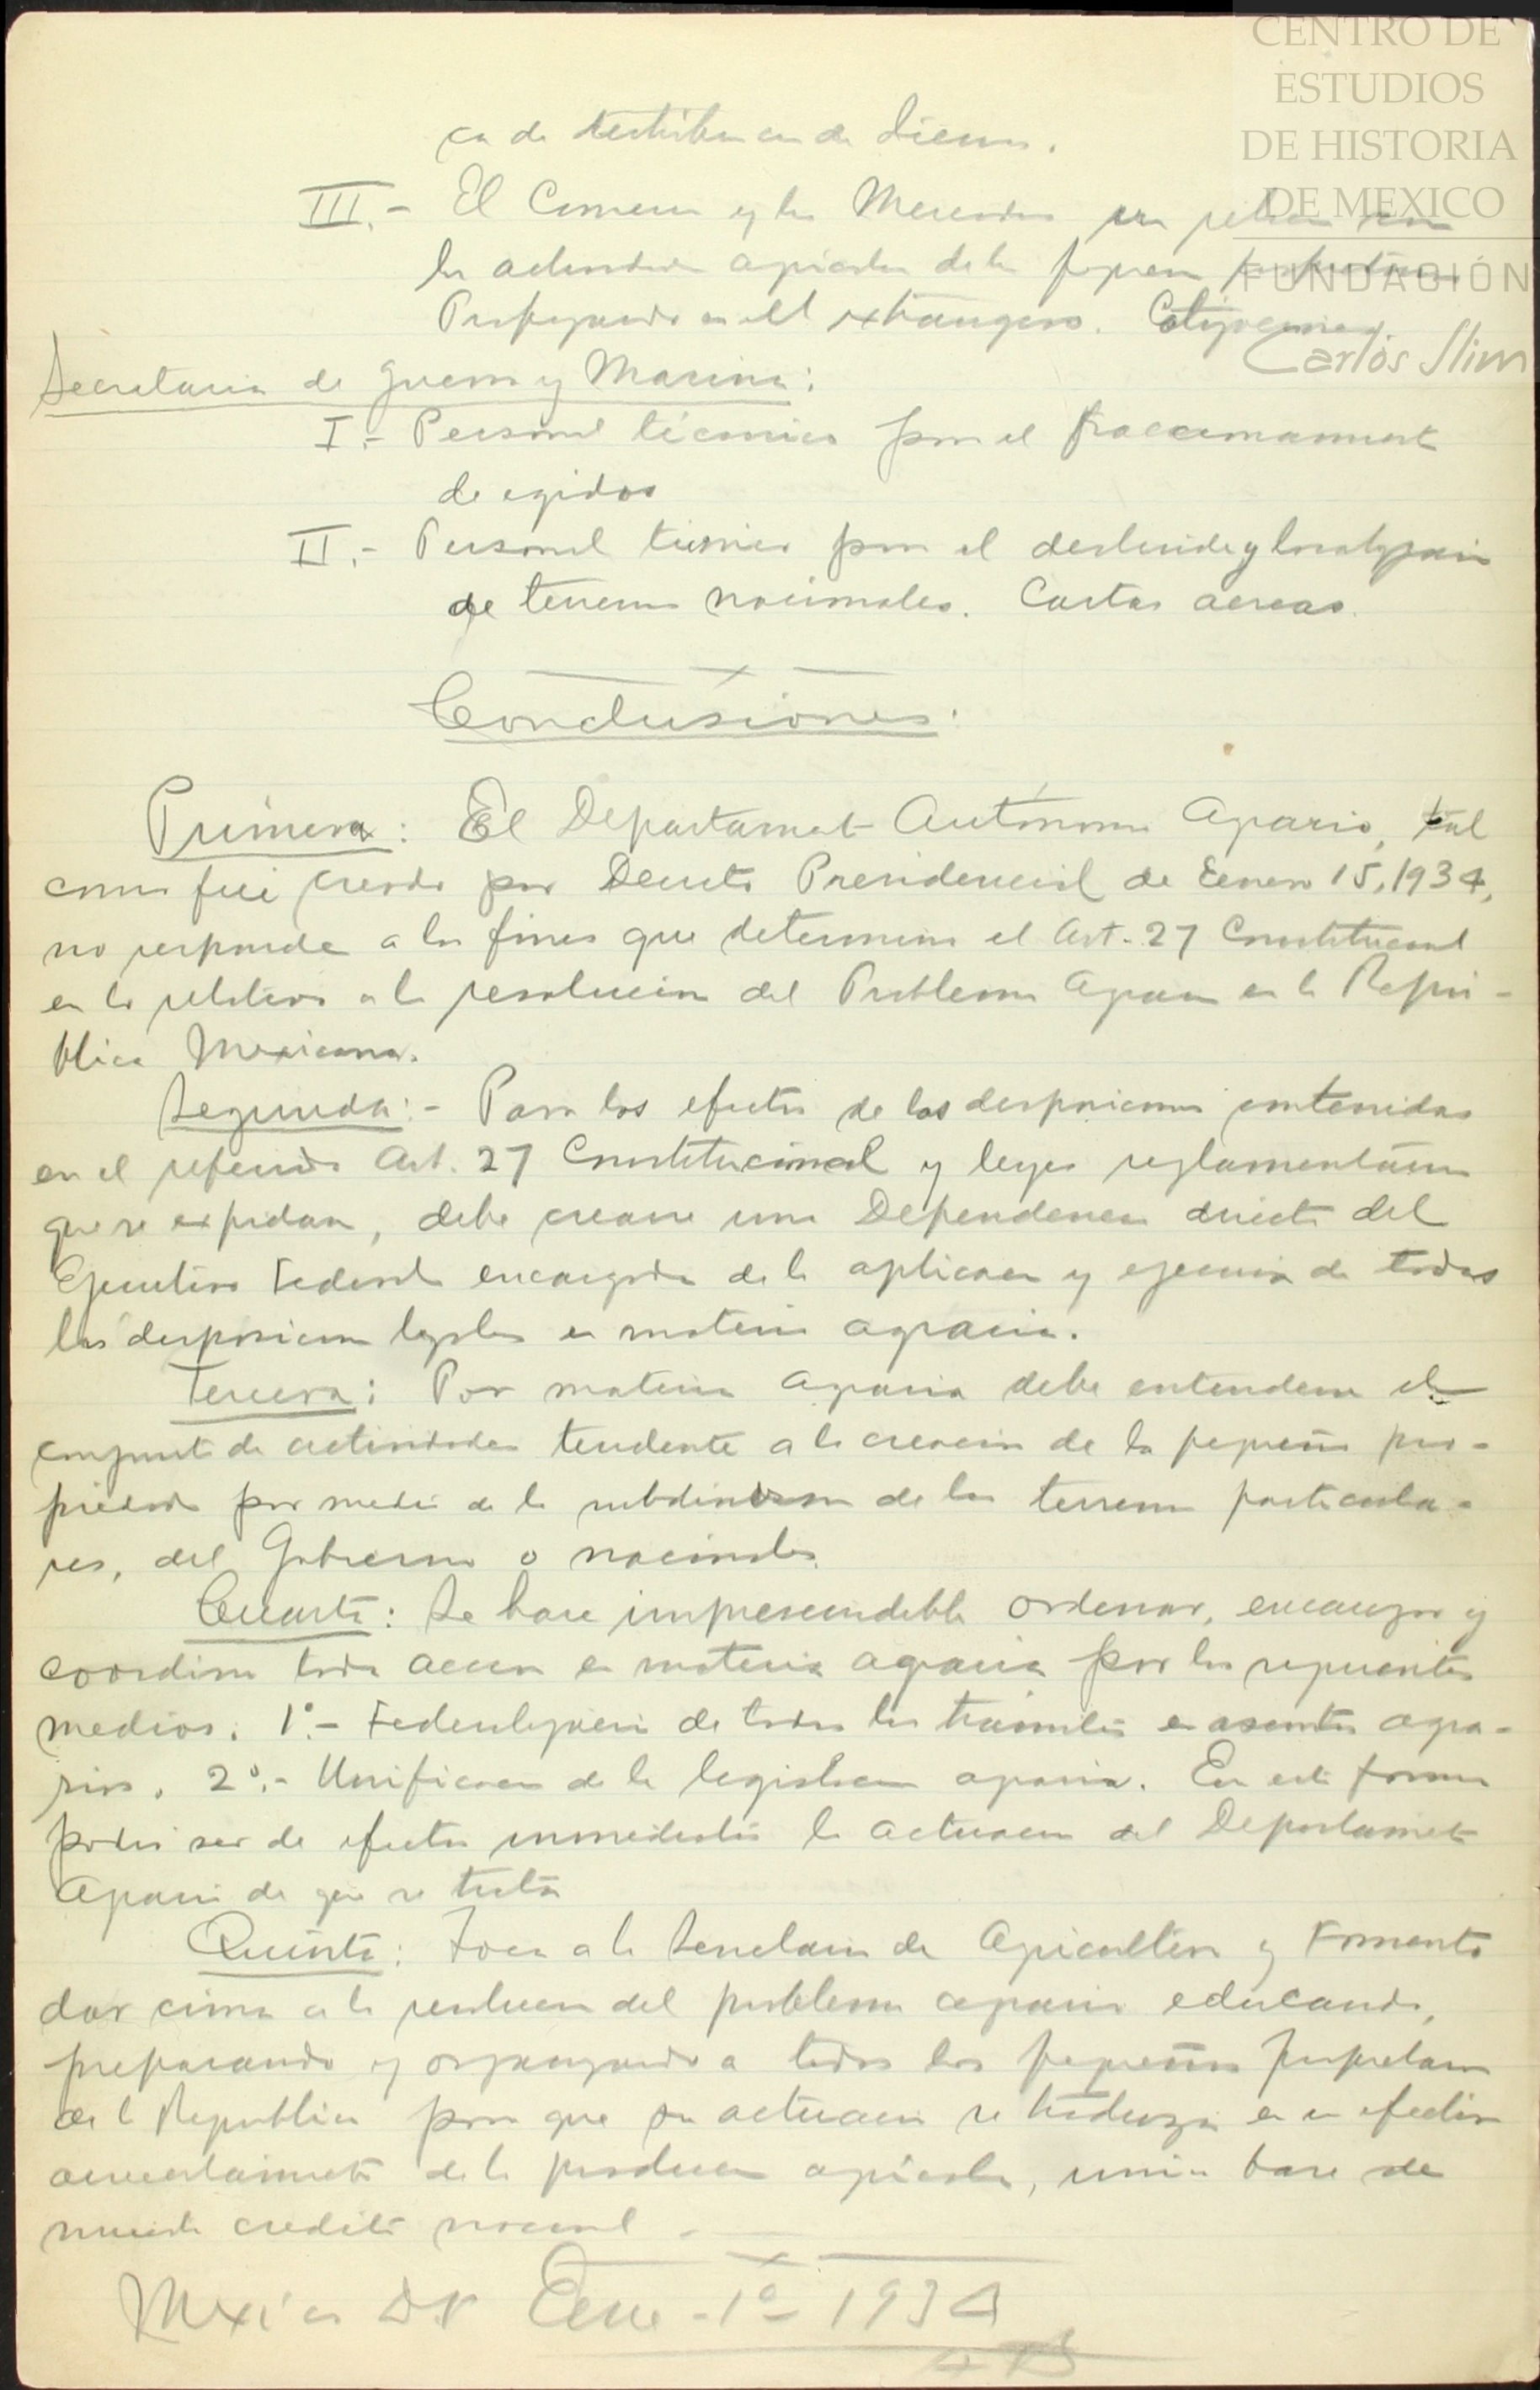 CENTRO DE
ESTUDIOS
DE HISTORIA
DE MEXICO
FUNDACIÓN
Carlos Slim
ca de
III.- El Comercio y los Mercados en
las actividades agricolas de la pequeña
Propaganda en el extrangero.
Secretaria de Guerra y Marina:
I.- Personal técnico para el fraccionamiento
de egidos
II.- Personal técnico para el deslinde y localización
de terrenos nacionales. Cartas aereas.
Conclusiones:
Primera: El Departamento Autónomo Agrario, tal
como fué creado por Decreto Presidencial de Enero 15, 1934,
no responde a los fines que determina el Art. 27 Constitucional
en lo relativo a la resolución del Problema Agrario en la Repú-
blica Mexicana.
Segunda:- Para los efectos de las disposiciones contenidas
en el referido Art. 27 Constitucional y leyes reglamentarias
que se expidan, debe crearse una Dependencia directa del
Ejecutivo Federal encargada de la aplicación y ejecución de todas
las disposiciones legales en materia agraria.
Tercera: Por materia agraria debe entenderse el
conjunto de actividades tendente a la creación de la pequeña pro-
piedad por medio de la subdivision de los terrenos particula-
res, del Gobierno o nacionales.
Cuarta: Se hace imprescindible ordenar, encauzar y
coordinar toda accion en materia agraria por los siguientes
medios. 1°.- Federalización de todos los tramites en asuntos agra-
rios. 2°.- Unificacion de la legislacion agraria. En esta forma
podrá ser de efectos inmediatos la actuacion del Departamento
Agrario de que se trata
Quinta: Toca a la Secretaria de Agricultura y Fomento
dar cima a la resolucion del problema agrario educando,
preparando y organizando a todos los pequeños propietarios
de la Republica para que su actuacion se traduzca en un efectivo
acrecentamiento de la produccion agricola, unica base de
nuestro credito nacional.
Mexico D.F. Enero - 1° - 1934